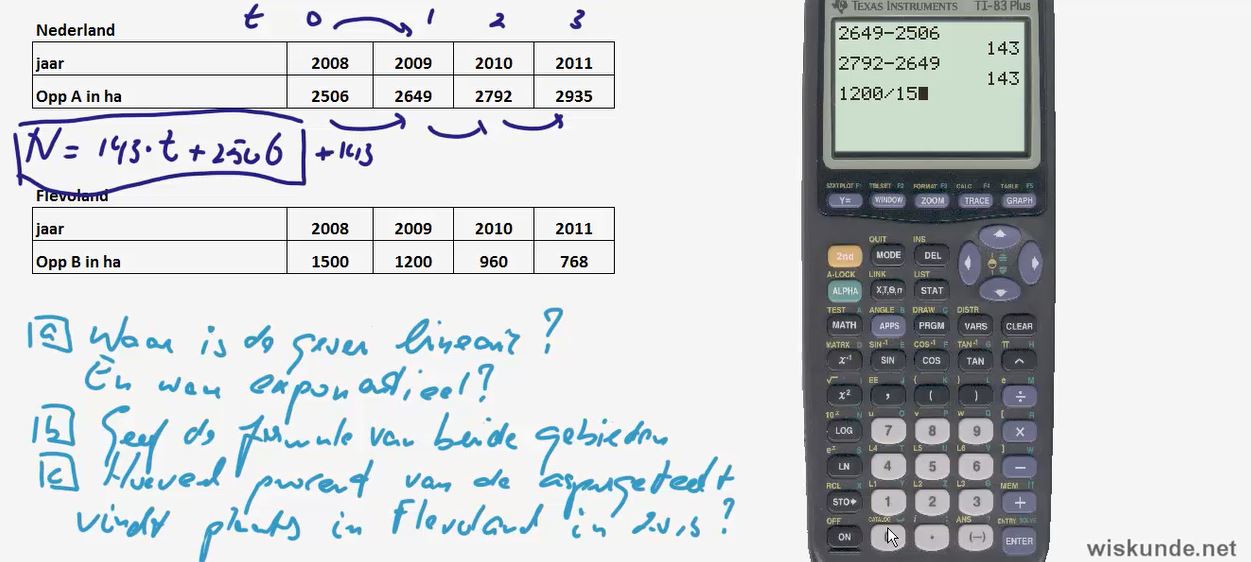 t 0 1 2 3
Nederland
jaar 2008 2009 2010 2011
Opp A in ha 2506 2649 2792 2935
N = 143 · t + 2506 + 143
Flevoland
jaar 2008 2009 2010 2011
Opp B in ha 1500 1200 960 768
a Waar is de groei lineair?
En waar exponentieel?
b Geef de formule van beide gebieden
c Hoeveel procent van de aspergeteelt
vindt plaats in Flevoland in 2013?
TEXAS INSTRUMENTS TI-83 Plus
2649-2506
143
2792-2649
143
1200/15
STAT PLOT F1 TBLSET F2 FORMAT F3 CALC F4 TABLE F5
Y= WINDOW ZOOM TRACE GRAPH
QUIT INS
2nd MODE DEL
A-LOCK LINK LIST
ALPHA X,T,Θ,n STAT
TEST A ANGLE B DRAW C DISTR
MATH APPS PRGM VARS CLEAR
MATRX D SIN-1 E COS-1 F TAN-1 G π H
x-1 SIN COS TAN ^
√ I EE J { K } L e M
x2 , ( ) ÷
10x N u O v P w Q [ R
LOG 7 8 9 ×
ex S L4 T L5 U L6 V ] W
LN 4 5 6 −
RCL X L1 Y L2 Z L3 θ MEM "
STO 1 2 3 +
OFF CATALOG i : ANS ? ENTRY SOLVE
ON . (−) ENTER
wiskunde.net